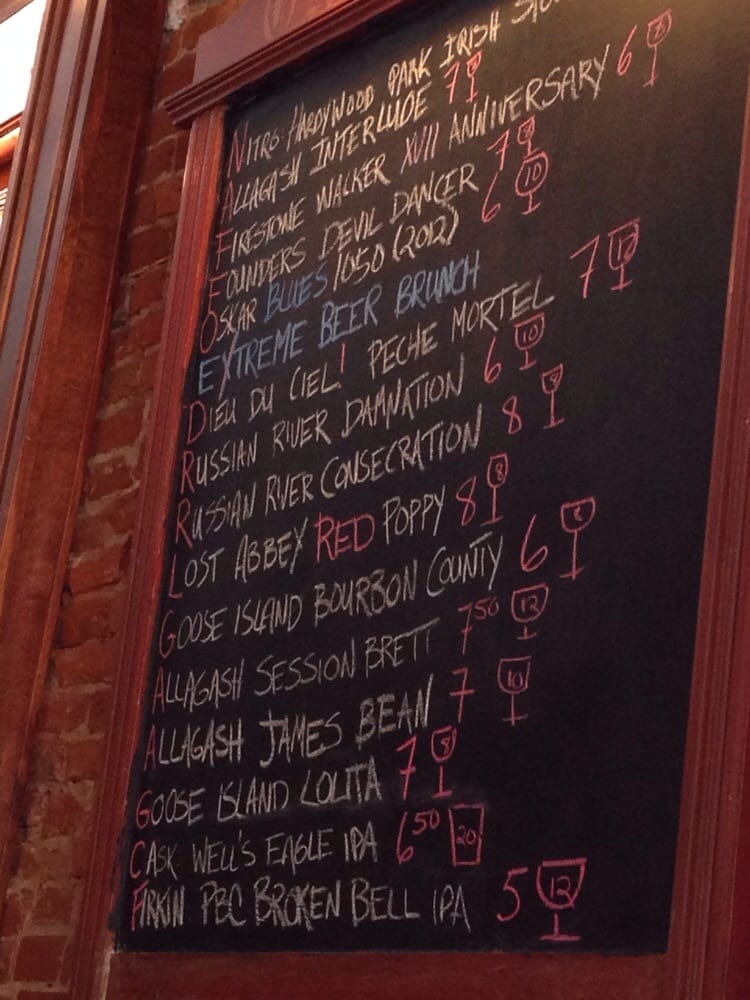 NITRO-HARDYWOOD PARK IRISH
ALLAGASH INTERLUDE 7
FIRESTONE WALKER XVII ANNIVERSARY 6
FOUNDERS DEVIL DANCER 7
OSKAR BLUES 1050 (2012) 6 10
EXTREME BEER BRUNCH
DIEU DU CIEL! PECHE MORTEL 7 12
RUSSIAN RIVER DAMNATION 6 10
RUSSIAN RIVER CONSECRATION 8 8
LOST ABBEY RED POPPY 8 8
GOOSE ISLAND BOURBON COUNTY 6 8
ALLAGASH SESSION BRETT 7 50 12
ALLAGASH JAMES BEAN 7 10
GOOSE ISLAND LOLITA 7 8
CASK WELL'S EAGLE IPA 6 50 20
FIRKIN PBC BROKEN BELL IPA 5 12